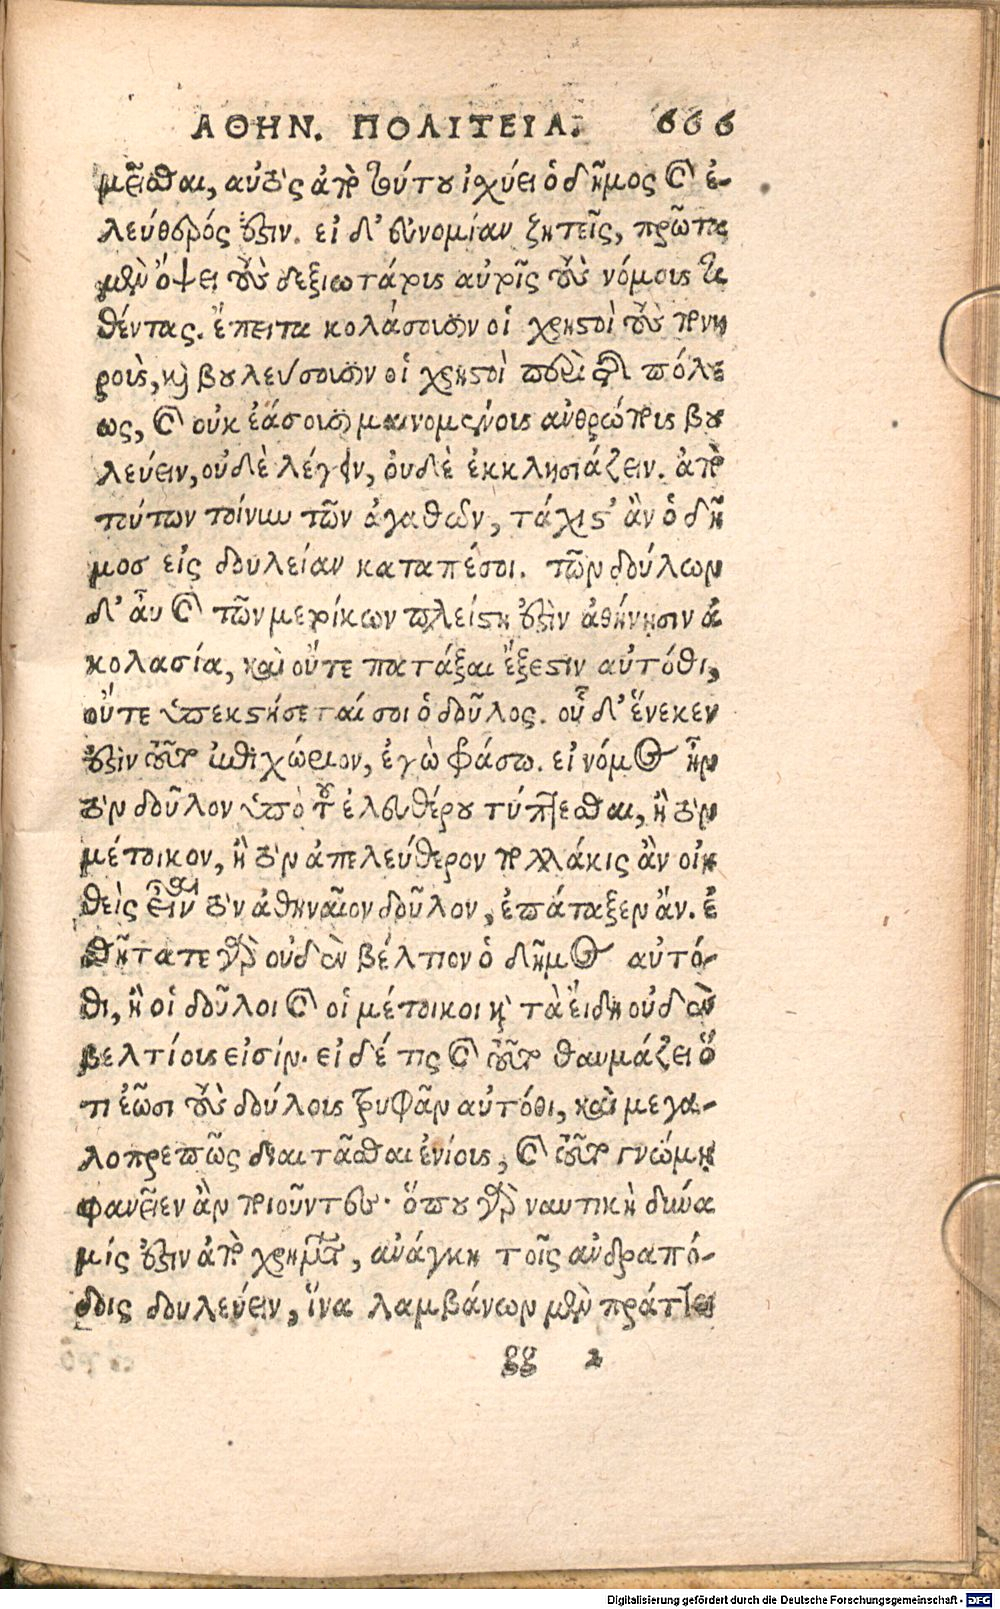 ΑΘΗΝ. ΠΟΛΙΤΕΙΑ. 666
μεῖσθαι, αὐτὸς ἀπὸ τούτου ἰχύει ὁ δῆμος καὶ ἐ-
λεύθερός ἐστιν. εἰ δ' εὐνομίαν ζητεῖς, πρῶτα
μὲν ὄψει τοὺς δεξιωτάτους αὐτοῖς τοὺς νόμους τι
θέντας. ἔπειτα κολάσουσιν οἱ χρηστοὶ τοὺς πονη
ροὺς, καὶ βουλεύσουσιν οἱ χρηστοὶ περὶ τῆς πόλε
ως, καὶ οὐκ ἐάσουσι μαινομένους ἀνθρώπους βου
λεύειν, οὐδὲ λέγειν, οὐδὲ ἐκκλησιάζειν. ἀπὸ
τούτων τοίνυν τῶν ἀγαθῶν, τάχιστ' ἂν ὁ δῆ
μοσ εἰς δουλείαν καταπέσοι. τῶν δούλων
δ' ἂυ καὶ τῶν μετοίκων πλείστη ἐστὶν ἀθήνησιν ἀ
κολασία, καὶ οὔτε πατάξαι ἔξεστιν αὐτόθι,
οὔτε ὑπεκστήσεταί σοι ὁ δοῦλος. οὗ δ' ἕνεκεν
ἐστὶν τοῦτο ἐπιχώριον, ἐγὼ φράσω. εἰ νόμος ἦν
τὸν δοῦλον ὑπὸ τοῦ ἐλευθέρου τύπτεσθαι, ἢ τὸν
μέτοικον, ἢ τὸν ἀπελεύθερον πολλάκις ἂν οἰη
θεὶς εἶναι τὸν ἀθηναῖον δοῦλον, ἐπάταξεν ἄν. ἐ
σθῆτα τε γὰρ οὐδὲν βέλτιον ὁ δῆμος αὐτό-
θι, ἢ οἱ δοῦλοι καὶ οἱ μέτοικοι καὶ τὰ ἔιδη οὐδὲν
βελτίους εἰσίν. εἰ δέ τις καὶ τοῦτο θαυμάζει ὅ
τι ἐῶσι τοὺς δούλους τρυφᾶν αὐτόθι, καὶ μεγα-
λοπρεπῶς διαιτᾶσθαι ἐνίους, καὶ τοῦτο γνώμη
φανεῖεν ἂν ποιοῦντες. ὅπου γὰρ ναυτικὴ δύνα
μίς ἐστιν ἀπὸ χρημάτων, ἀνάγκη τοῖς ἀνδραπό-
δοις δουλεύειν, ἵνα λαμβάνων μὲν πράττει
gg 2
Digitalisierung gefördert durch die Deutsche Forschungsgemeinschaft - DFG